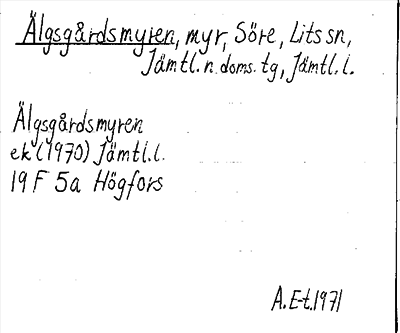 Älgsgårdsmyren, myr, Söre, Lits sn,
Jämtl. n. doms. tg, Jämtl. l.
Älgsgårdsmyren
ek (1970) Jämtl. l.
19 F 5a Högfors
A. E-t. 1971